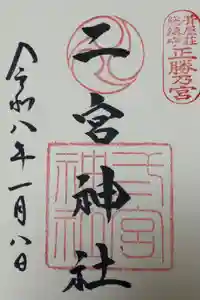 正勝乃宮
二宮神社
二宮神社
令和八年一月八日